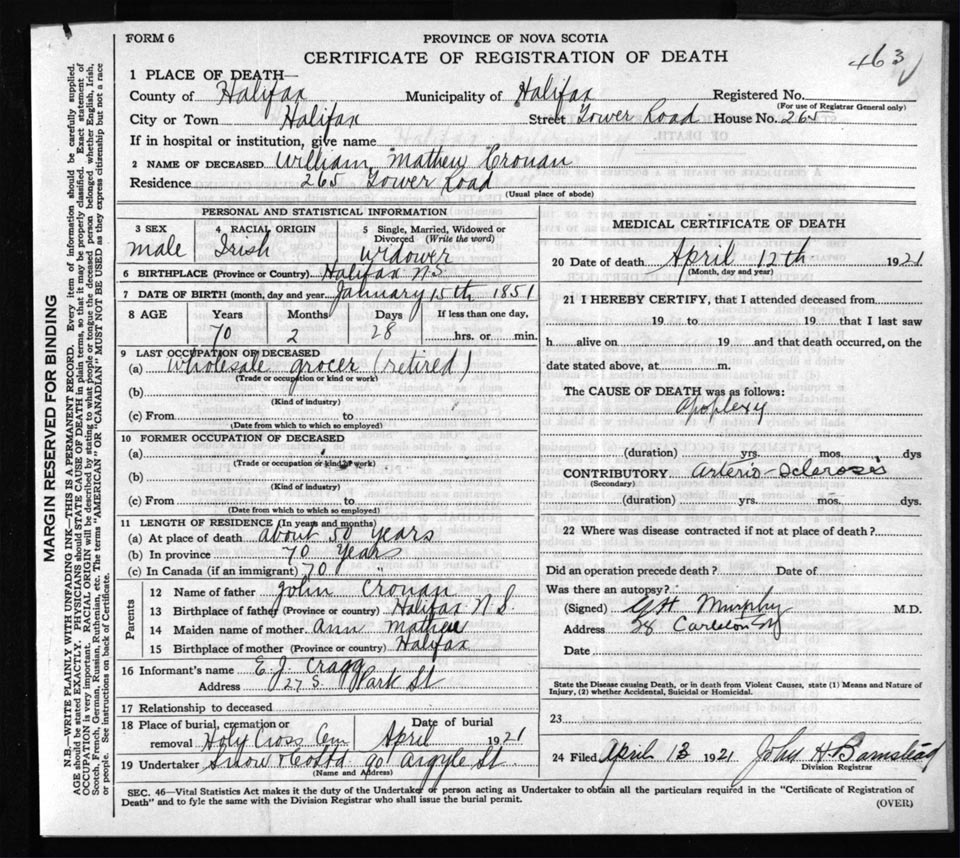 FORM 6
PROVINCE OF NOVA SCOTIA
CERTIFICATE OF REGISTRATION OF DEATH
463
1 PLACE OF DEATH—
County of Halifax Municipality of Halifax Registered No.
(For use of Registrar General only)
City or Town Halifax Street Tower Road House No. 265
If in hospital or institution, give name
2 NAME OF DECEASED William Mathew Cronan
Residence 265 Tower Road
(Usual place of abode)
PERSONAL AND STATISTICAL INFORMATION
3 SEX 4 RACIAL ORIGIN 5 Single, Married, Widowed or Divorced (Write the word)
male Irish widower
6 BIRTHPLACE (Province or Country) Halifax N S
7 DATE OF BIRTH (month, day and year January 15th 1851
8 AGE Years Months Days If less than one day,
70 2 28 hrs. or min.
9 LAST OCCUPATION OF DECEASED
(a) Wholesale grocer (retired)
(Trade or occupation or kind or work)
(b)
(Kind of industry)
(c) From to
(Date from which to which so employed)
10 FORMER OCCUPATION OF DECEASED
(a)
(Trade or occupation or kind or work)
(b)
(Kind of industry)
(c) From to
(Date from which to which so employed)
11 LENGTH OF RESIDENCE (In years and months)
(a) At place of death about 50 years
(b) In province 70 years
(c) In Canada (if an immigrant) 70 "
Parents
12 Name of father John Cronan
13 Birthplace of father (Province or country) Halifax N.S.
14 Maiden name of mother Ann Mathew
15 Birthplace of mother (Province or country) Halifax
16 Informant's name E. J. Cragg
Address 27 S. Park St
17 Relationship to deceased
18 Place of burial, cremation or removal Holy Cross Cem Date of burial April 1921
19 Undertaker Snow & Co Ltd 90 Argyle St.
(Name and Address)
MEDICAL CERTIFICATE OF DEATH
20 Date of death April 12th 1921
(Month, day and year)
21 I HEREBY CERTIFY, that I attended deceased from
19 to 19 that I last saw
h alive on 19 and that death occurred, on the
date stated above, at m.
The CAUSE OF DEATH was as follows:
Apoplexy
(duration) yrs. mos. dys
CONTRIBUTORY Arterio-Sclerosis
(Secondary)
(duration) yrs. mos. dys.
22 Where was disease contracted if not at place of death?
Did an operation precede death? Date of
Was there an autopsy?
(Signed) G H Murphy M.D.
Address 28 Carleton St
Date
State the Disease causing Death, or in death from Violent Causes, state (1) Means and Nature of
Injury, (2) whether Accidental, Suicidal or Homicidal.
23
24 Filed April 13 1921 John H Barnstead
Division Registrar
SEC. 46—Vital Statistics Act makes it the duty of the Undertaker or person acting as Undertaker to obtain all the particulars required in the "Certificate of Registration of
Death" and to fyle the same with the Division Registrar who shall issue the burial permit.
(OVER)
MARGIN RESERVED FOR BINDING
N.B.—WRITE PLAINLY WITH UNFADING INK—THIS IS A PERMANENT RECORD. Every item of information should be carefully supplied.
AGE should be stated EXACTLY. PHYSICIANS should STATE CAUSE OF DEATH in plain terms, so that it may be properly classified. Exact statement of
OCCUPATION is very important. RACIAL ORIGIN will be described by stating to what people or tongue the deceased person belonged whether English, Irish,
Scotch, French, German, Russian, Ruthenian, etc. The terms "AMERICAN" or "CANADIAN" MUST NOT BE USED as they express citizenship but not a race
or people. See instructions on back of Certificate.